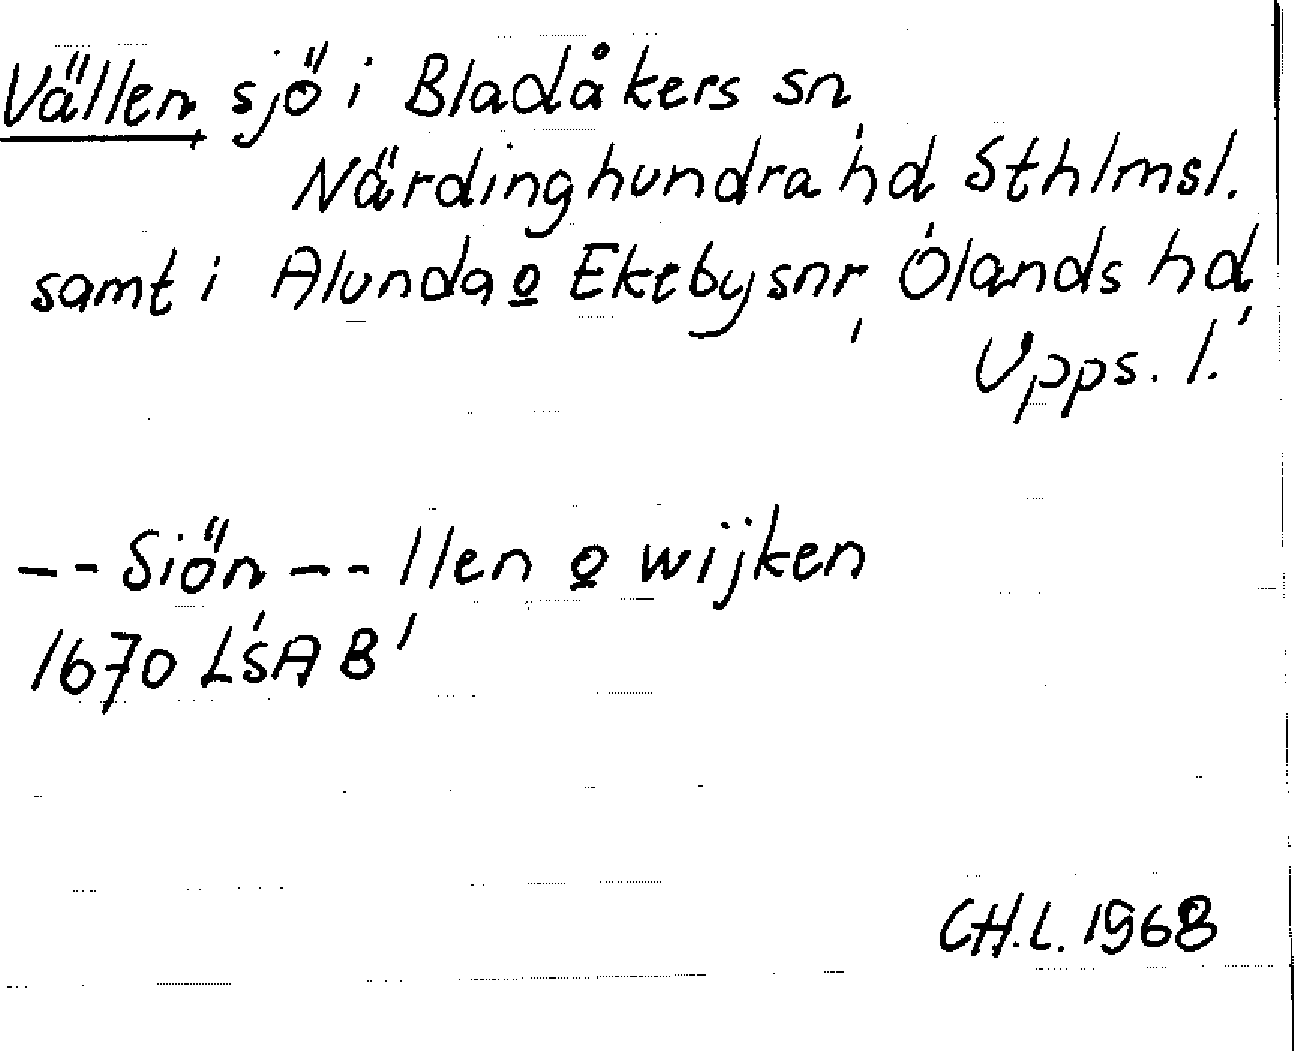 Vällen sjö i Bladåkers sn,
Närdinghundra hd Sthlmsl.
samt i Alunda o Ekeby snr, Olands hd,
Upps. l.
-- Siön -- llen o wijken
1670 LSA B1
CH.L. 1968